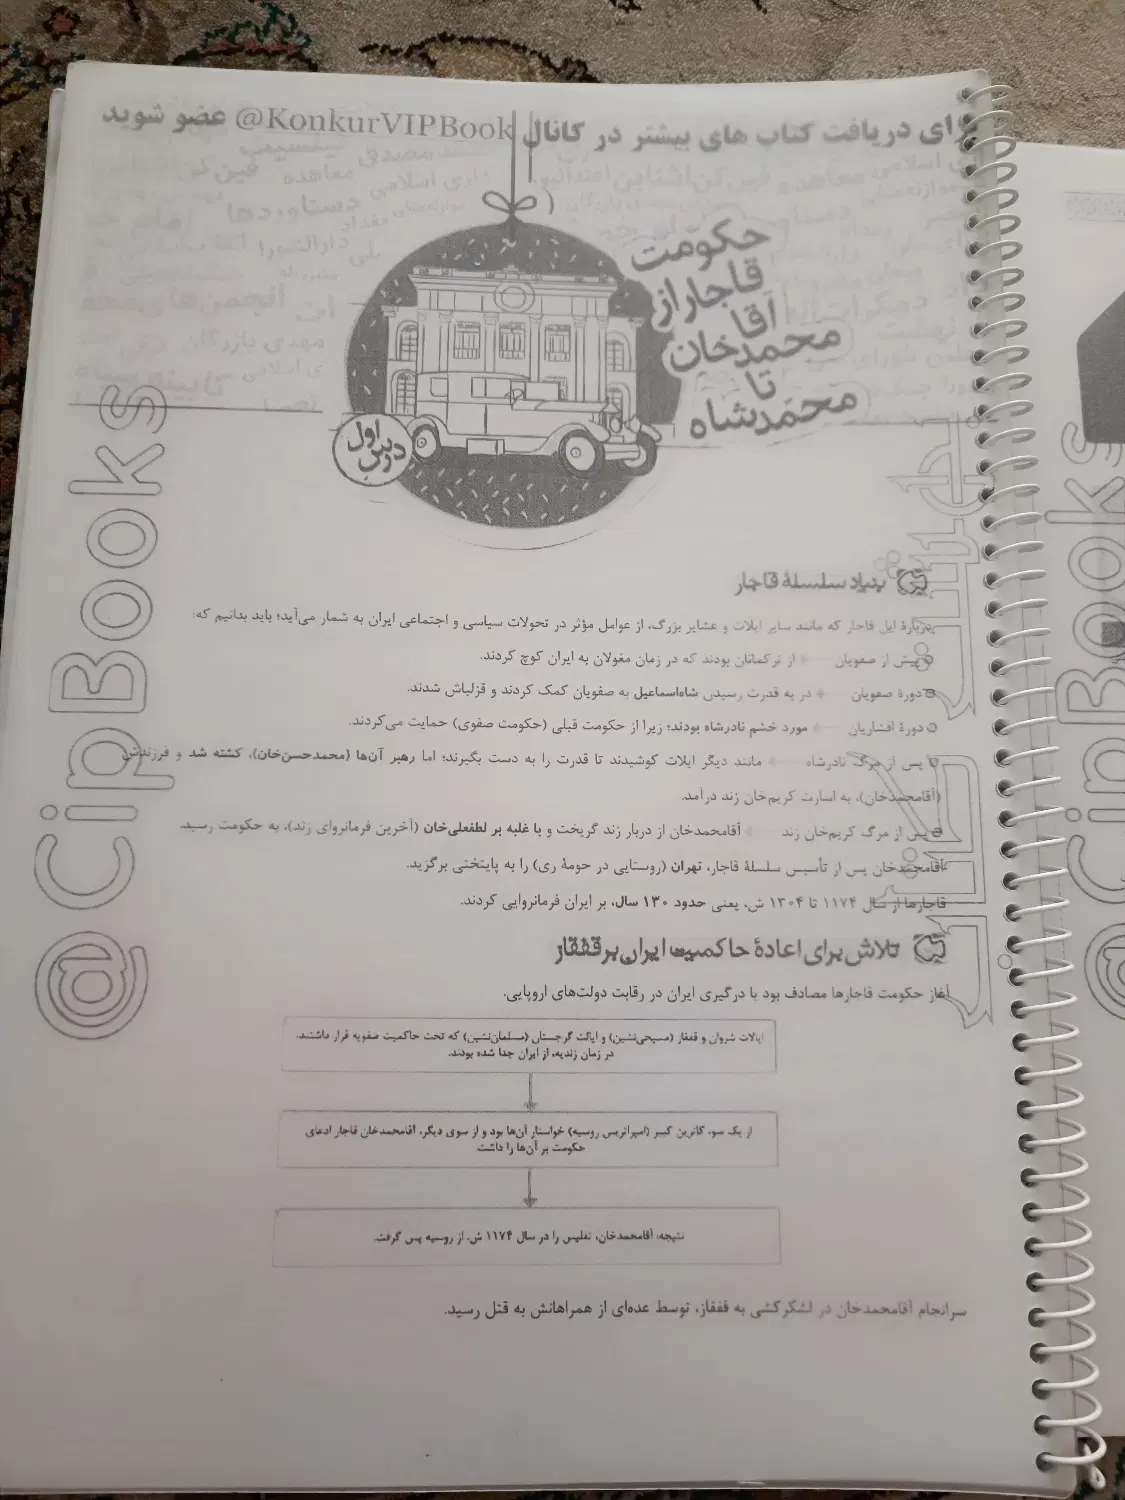 برای دریافت کتاب های بیشتر در کانال KonkurVIPBook@ عضو شوید
حکومت
قاجار از
آقا
محمدخان
تا
محمدشاه
درس اول
بنیاد سلسلهٔ قاجار
دربارهٔ ایل قاجار که مانند سایر ایلات و عشایر بزرگ، از عوامل مؤثر در تحولات سیاسی و اجتماعی ایران به شمار می‌آید؛ باید بدانیم که:
پیش از صفویان از ترکمانان بودند که در زمان مغولان به ایران کوچ کردند.
دورهٔ صفویان در به قدرت رسیدن شاه‌اسماعیل به صفویان کمک کردند و قزلباش شدند.
دورهٔ افشاریان مورد خشم نادرشاه بودند؛ زیرا از حکومت قبلی (حکومت صفوی) حمایت می‌کردند.
پس از مرگ نادرشاه مانند دیگر ایلات کوشیدند تا قدرت را به دست بگیرند؛ اما رهبر آن‌ها (محمدحسن‌خان)، کشته شد و فرزندش
(آقامحمدخان)، به اسارت کریم‌خان زند درآمد.
پس از مرگ کریم‌خان زند آقامحمدخان از دربار زند گریخت و با غلبه بر لطفعلی‌خان (آخرین فرمانروای زند)، به حکومت رسید.
آقامحمدخان پس از تأسیس سلسلهٔ قاجار، تهران (روستایی در حومهٔ ری) را به پایتختی برگزید.
قاجارها از سال ۱۱۷۴ تا ۱۳۰۴ ش، یعنی حدود ۱۳۰ سال، بر ایران فرمانروایی کردند.
تلاش برای اعادهٔ حاکمیت ایران بر قفقاز
آغاز حکومت قاجارها مصادف بود با درگیری ایران در رقابت دولت‌های اروپایی.
ایالات شروان و قفقاز (مسیحی‌نشین) و ایالت گرجستان (مسلمان‌نشین) که تحت حاکمیت صفویه قرار داشتند،
در زمان زندیه، از ایران جدا شده بودند.
از یک سو، کاترین کبیر (امپراتریس روسیه) خواستار آن‌ها بود و از سوی دیگر، آقامحمدخان قاجار ادعای
حکومت بر آن‌ها را داشت.
نتیجه، آقامحمدخان، تفلیس را در سال ۱۱۷۴ ش. از روسیه پس گرفت.
سرانجام آقامحمدخان در لشکرکشی به قفقاز، توسط عده‌ای از همراهانش به قتل رسید.
@CipBooks
@CipBooks